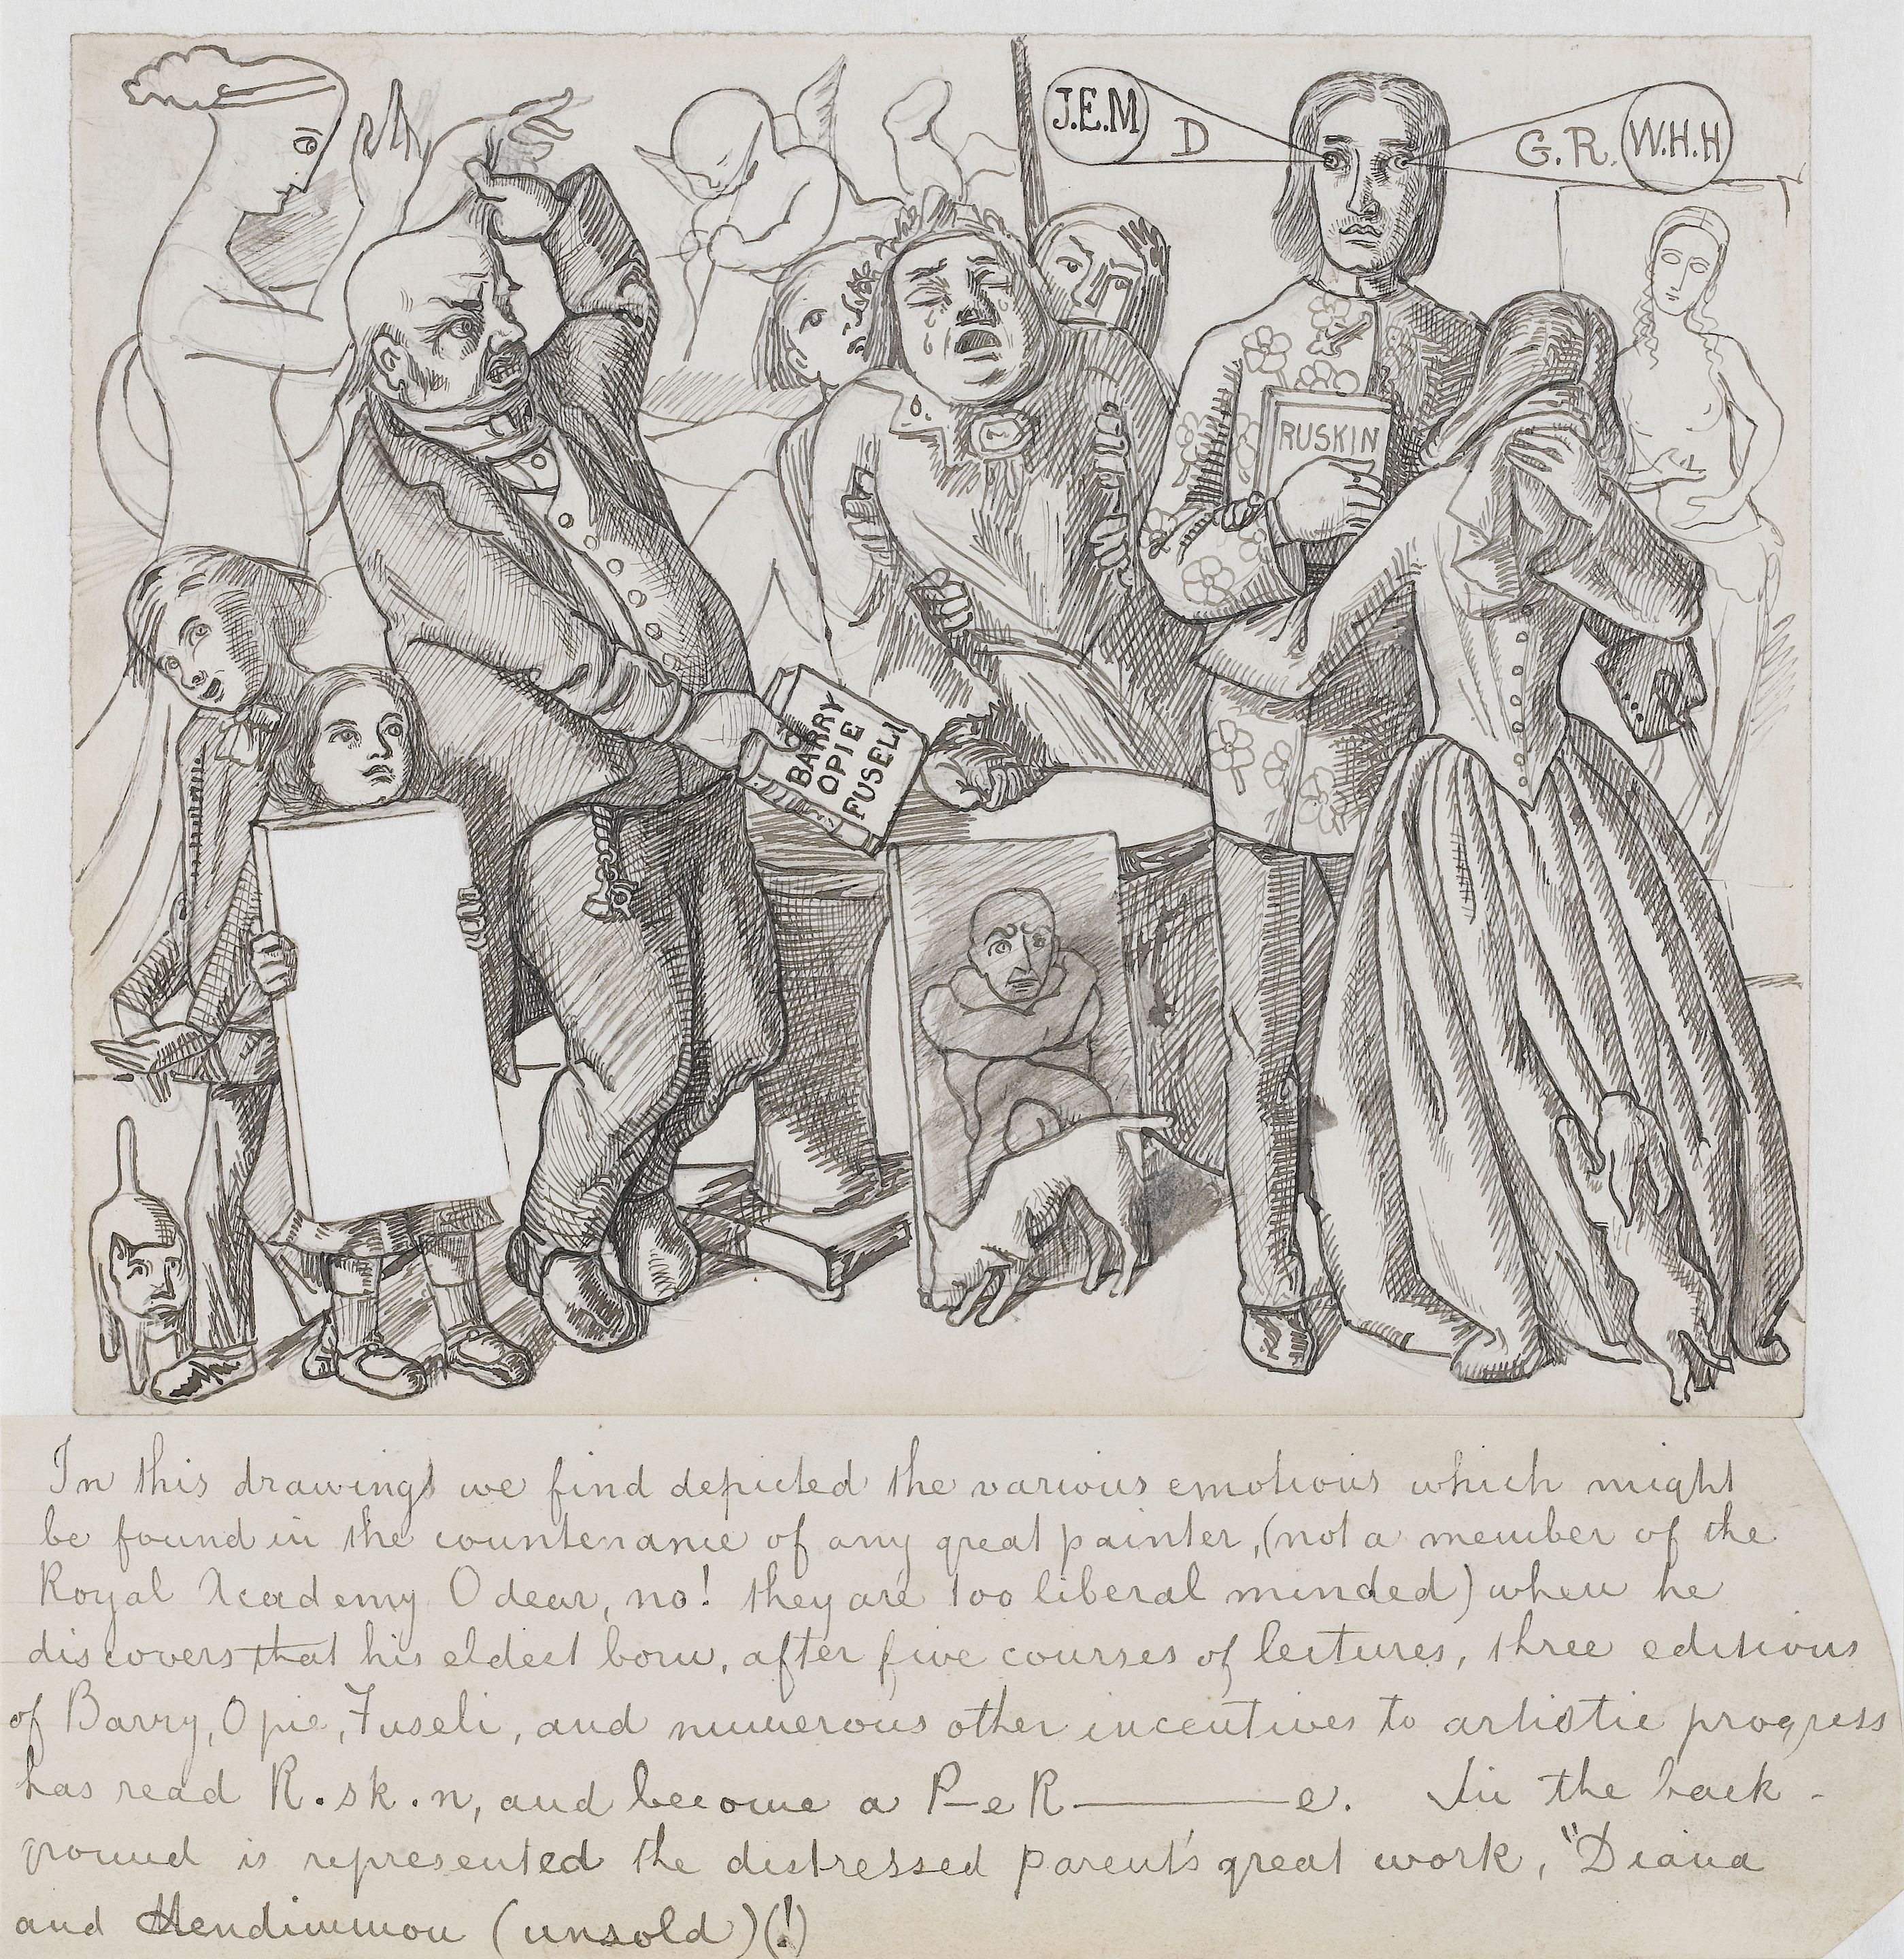 J.E.M
D
G.R.
W.H.H
RUSKIN
BARRY
OPIE
FUSELI
In this drawings we find depicted the various emotions which might
be found in the countenance of any great painter, (not a member of the
Royal Academy O dear, no! they are too liberal minded) when he
discovers that his eldest born, after five courses of lectures, three editions
of Barry, Opie, Fuseli, and numerous other incentives to artistic progress
has read R.sk.n, and become a P—e R———e. In the back-
ground is represented the distressed parent's great work, "Diana
and Hendimmon (unsold)(!)